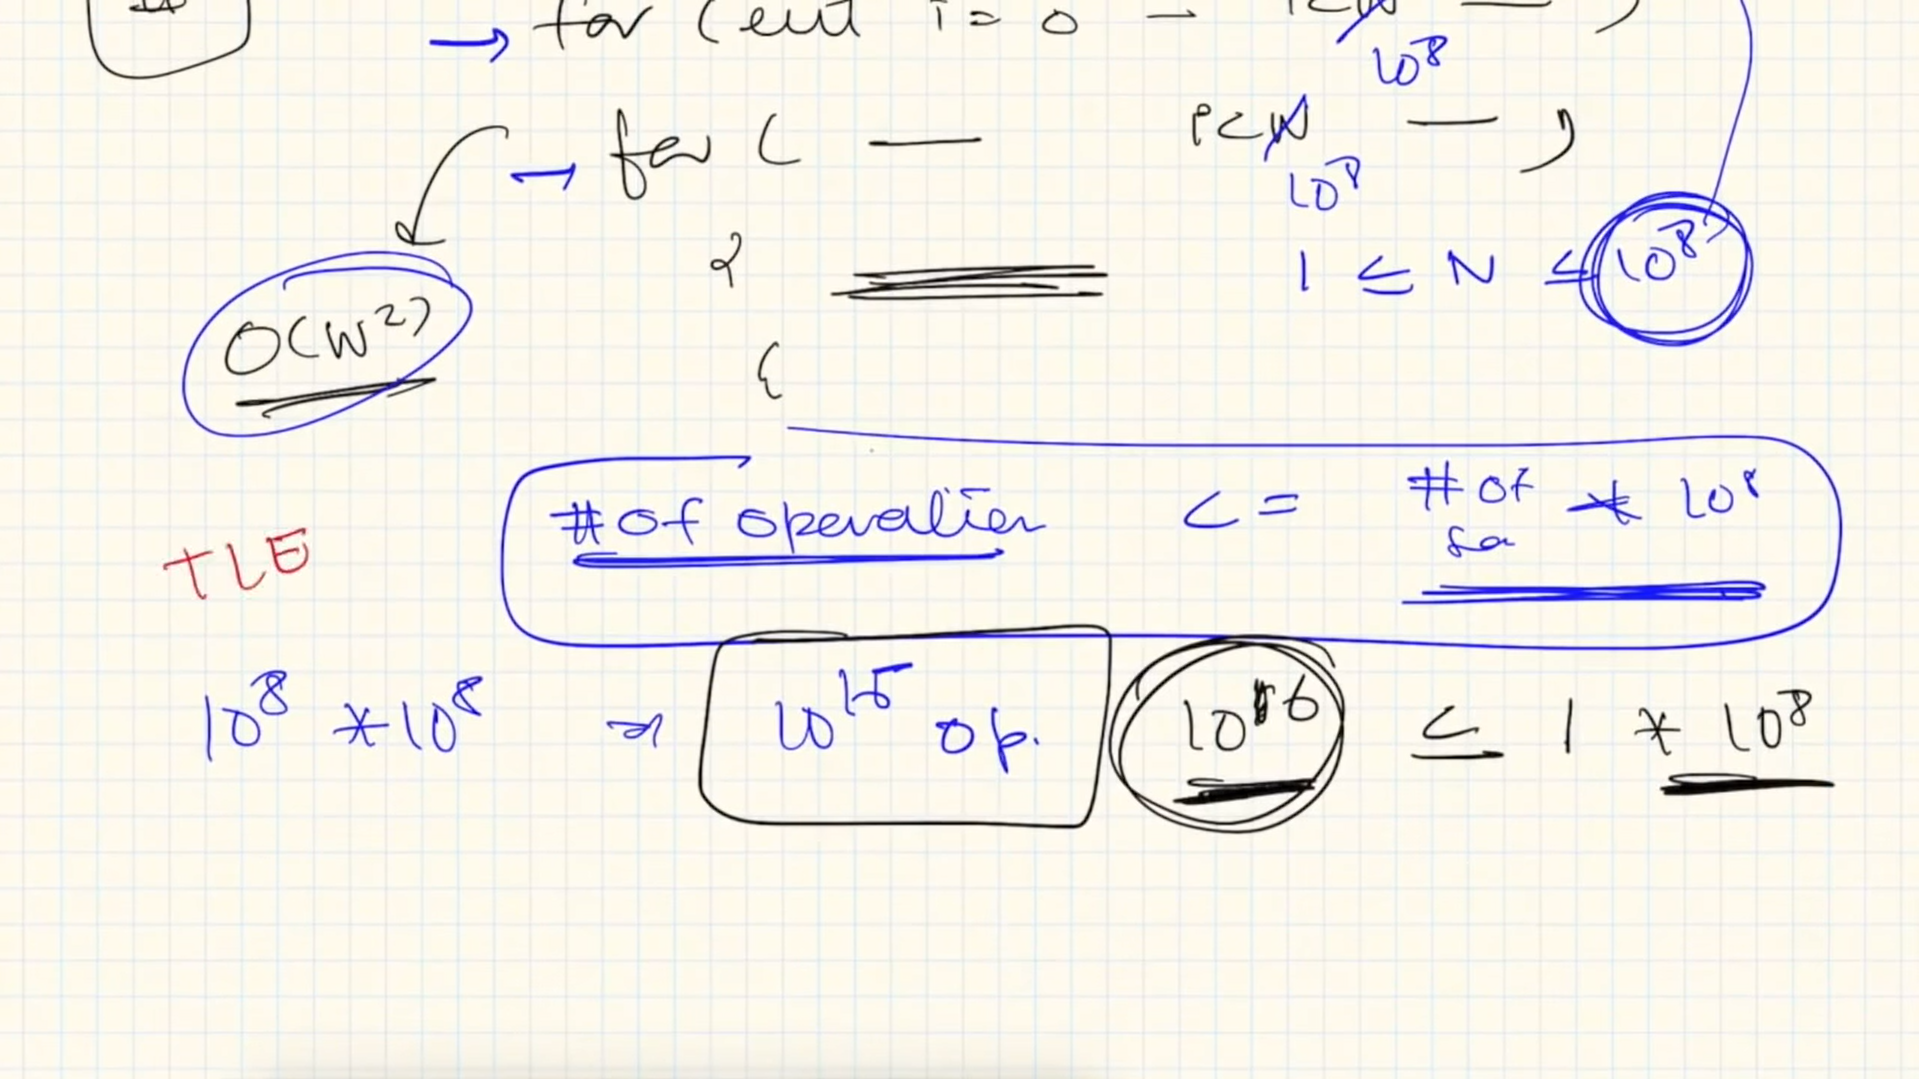 → for (int i = 0 — i<N — )
10^8
→ for ( — i<N — )
10^8
{
1 ≤ N ≤ 10^8
O(N²)
}
# of operation <= # of sec * 10^8
TLE
10^8 * 10^8 ⇒ 10^15 op. 10^16 ≤ 1 * 10^8